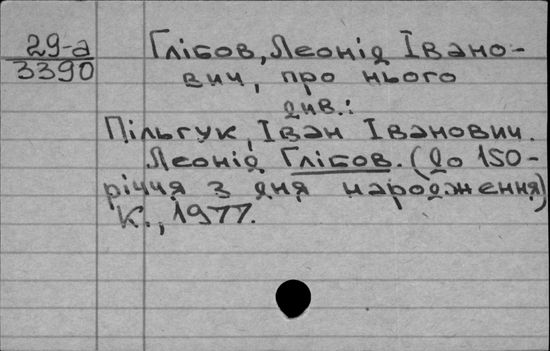 29-а
3390
Глібов, Леонід Івано-
вич, про нього
див.:
Пільгук, Іван Іванович.
Леонід Глібов. (До 150-
річчя з дня народження)
К., 1977.